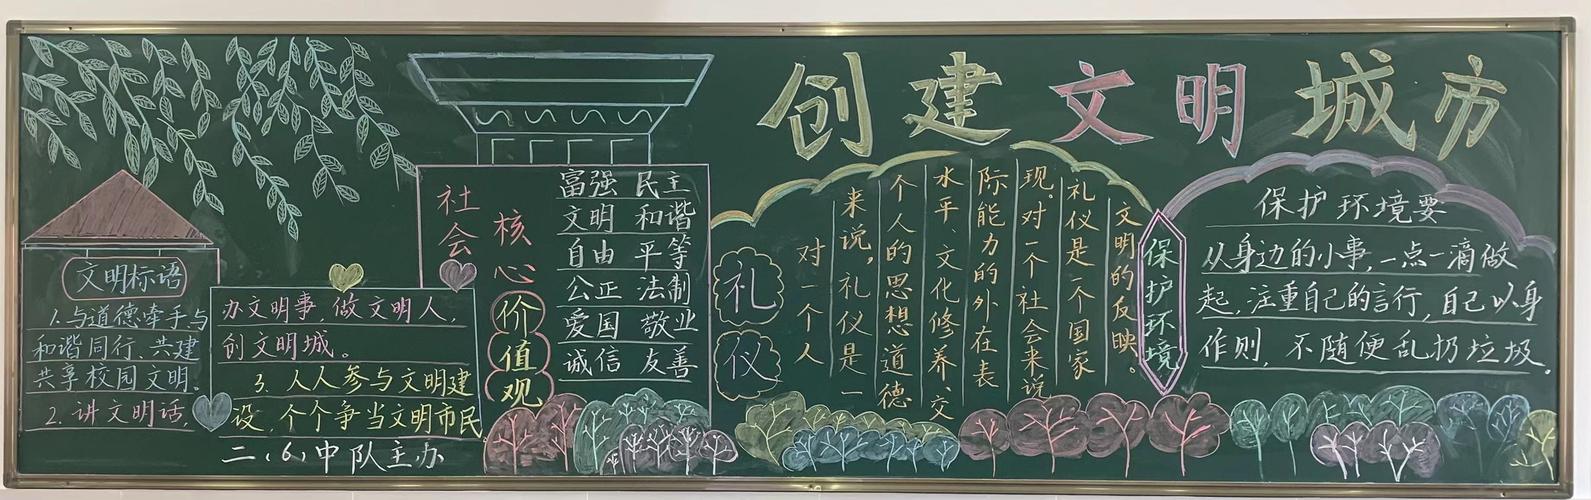 创建文明城市
文明标语
1.与道德牵手与
和谐同行、共建
共享校园文明。
2.讲文明话,
办文明事,做文明人,
创文明城。
3.人人参与文明建
设,个个争当文明市民
二、(6)中队主办
社会
核心
价值观
富强 民主
文明 和谐
自由 平等
公正 法制
爱国 敬业
诚信 友善
礼仪
对一个人
来说,礼仪是一
个人的思想道德
水平、文化修养、交
际能力的外在表
现。对一个社会来说
礼仪是一个国家
文明的反映。
保护环境
保护环境要
从身边的小事,一点一滴做
起,注重自己的言行,自己以身
作则,不随便乱扔垃圾。